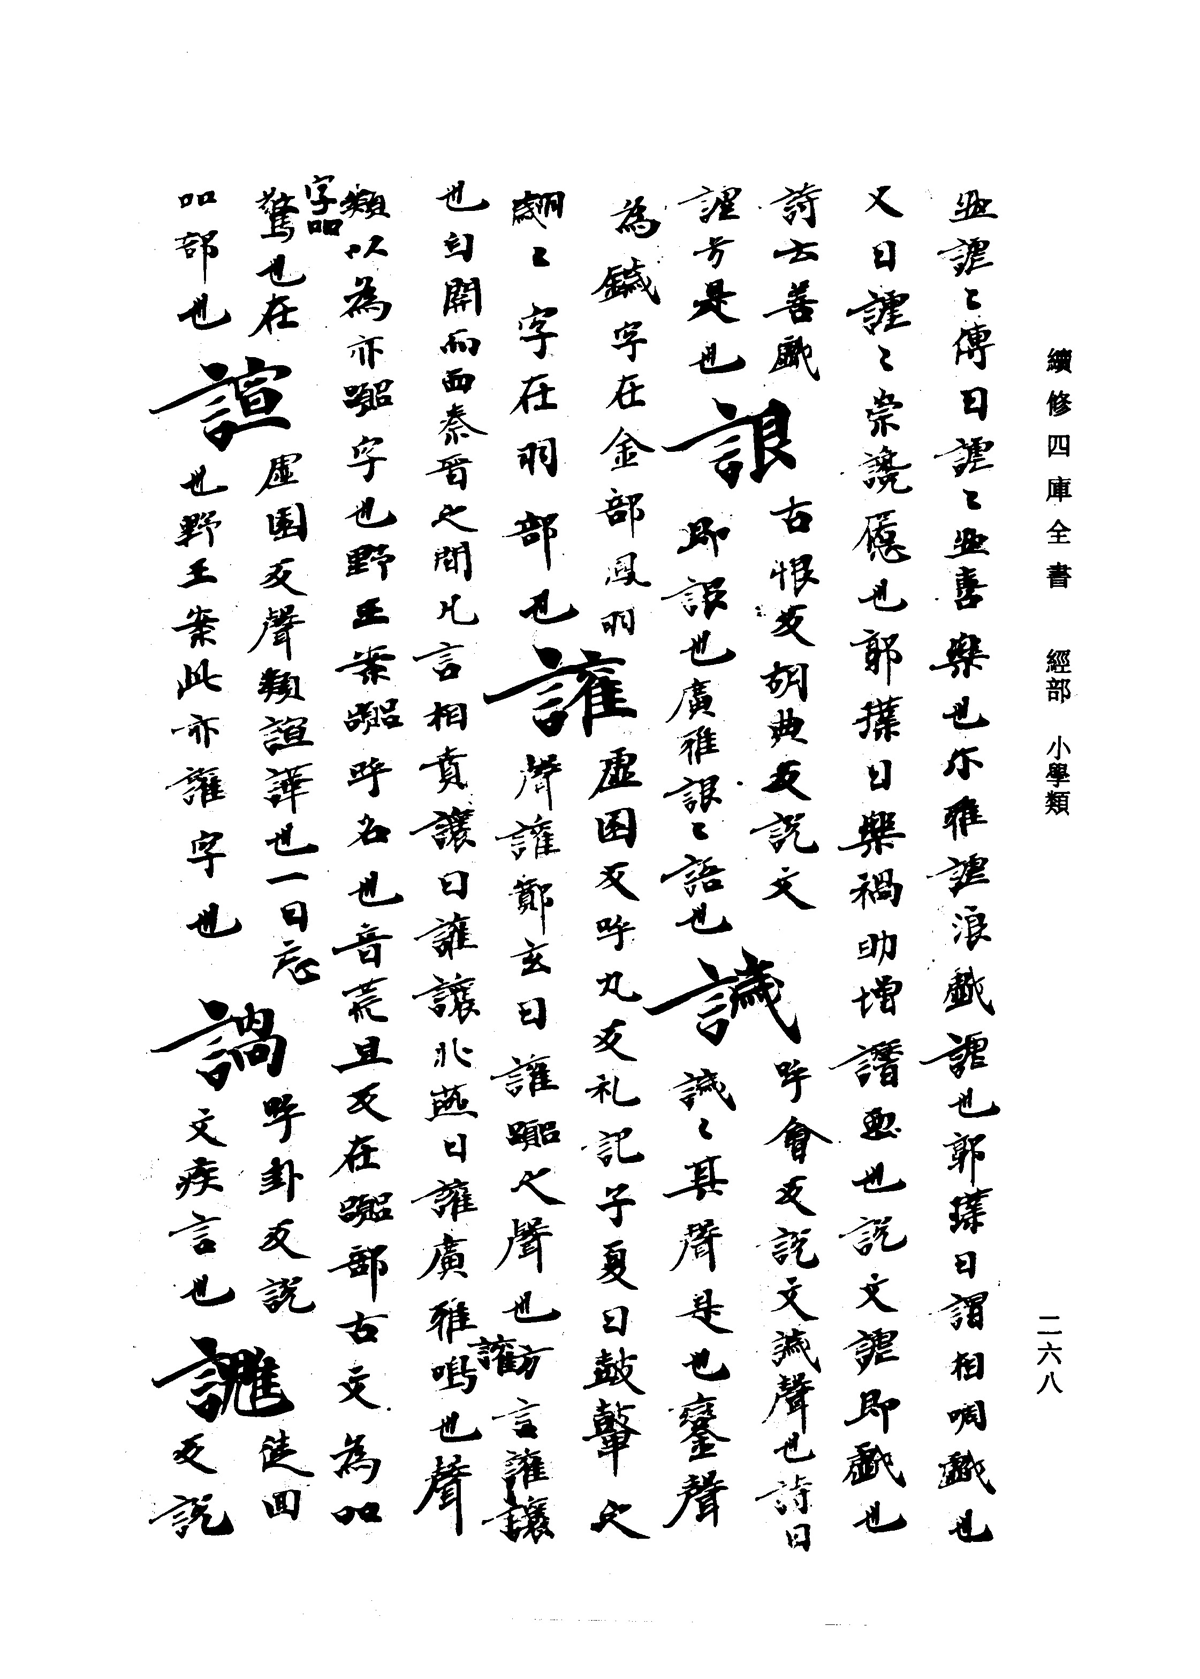 續修四庫全書 經部 小學類
二六八
無謔〻傳曰謔〻無喜樂也尒雅謔浪戲謔也郭璞曰謂相啁戲也
又曰謔〻崇讒慝也郭璞曰樂禍助增譖惡也說文謔即戲也
詩云善戲
謔兮是也
詪
古恨反胡典反說文
即詪也廣雅詪〻語也
䜋
呼會反說文䜋聲也詩曰
䜋〻其聲是也鑾聲
為鐬字在金部鳳羽
翽〻字在羽部也
讙
虛園反呼丸反礼記子夏曰鼓鼙之
聲讙鄭玄曰讙嚻之聲也方言讙讓
讙
也自關而西秦晉之間凡言相責讓曰讙讓北燕曰讙廣雅鳴也聲
類以為亦嚻字也野王案嚻呼名也音荒旦反在嚻部古文為吅
字吅
驚也在
吅部也
諠
虛園反聲類諠譁也一曰忘
也野王案此亦讙字也
諣
呼卦反說
文疾言也
徒回
反說